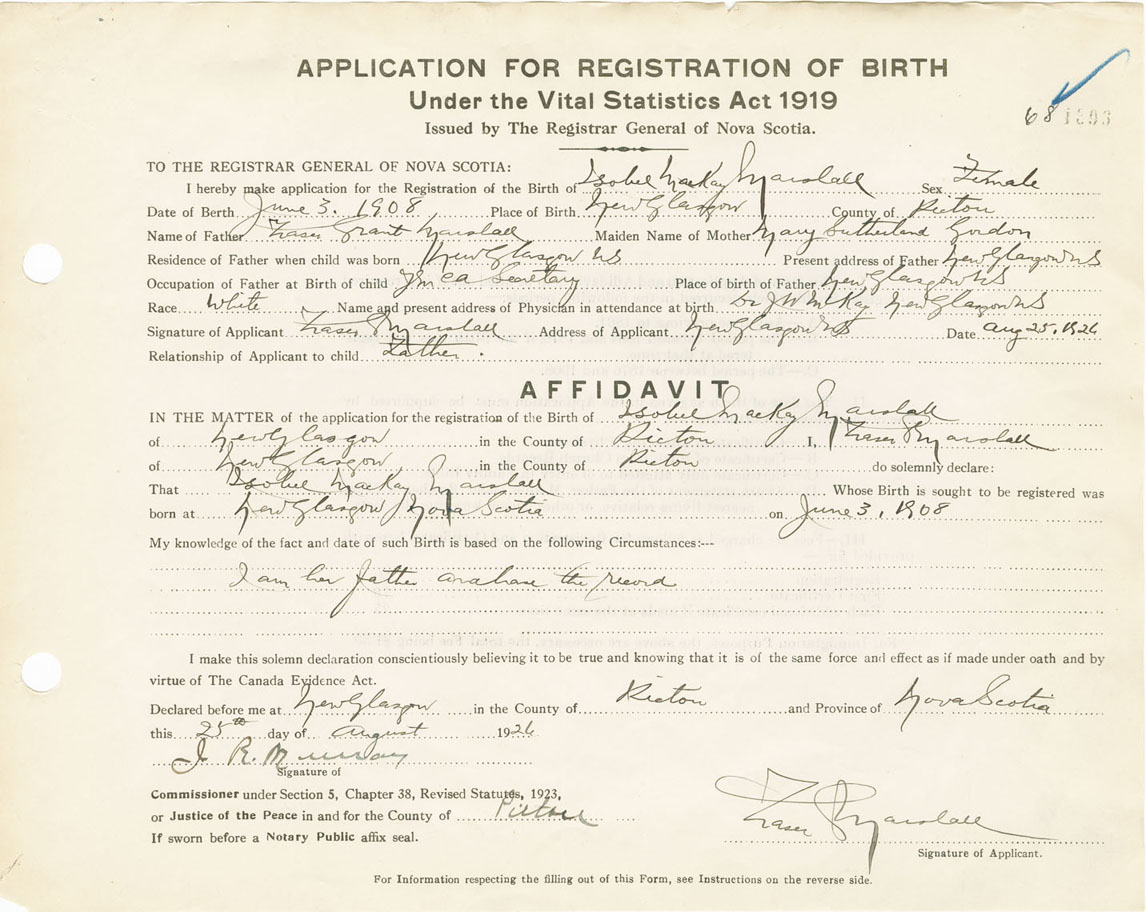 APPLICATION FOR REGISTRATION OF BIRTH
Under the Vital Statistics Act 1919
68 1303
Issued by The Registrar General of Nova Scotia.
TO THE REGISTRAR GENERAL OF NOVA SCOTIA:
I hereby make application for the Registration of the Birth of Isobel MacKay Marshall Sex Female
Date of Berth June 3. 1908 Place of Birth New Glasgow County of Pictou
Name of Father Fraser Grant Marshall Maiden Name of Mother Mary Sutherland Gordon
Residence of Father when child was born New Glasgow NS Present address of Father New Glasgow NS
Occupation of Father at Birth of child YMCA Secretary Place of birth of Father New Glasgow NS
Race White Name and present address of Physician in attendance at birth Dr J W McKay New Glasgow NS
Signature of Applicant Fraser G Marshall Address of Applicant New Glasgow NS Date Aug 25, 1926
Relationship of Applicant to child Father.
AFFIDAVIT
IN THE MATTER of the application for the registration of the Birth of Isobel MacKay Marshall
of New Glasgow in the County of Pictou I, Fraser G Marshall
of New Glasgow in the County of Pictou do solemnly declare:
That Isobel MacKay Marshall Whose Birth is sought to be registered was
born at New Glasgow Nova Scotia on June 3, 1908
My knowledge of the fact and date of such Birth is based on the following Circumstances:---
I am her father and have the record
I make this solemn declaration conscientiously believing it to be true and knowing that it is of the same force and effect as if made under oath and by
virtue of The Canada Evidence Act.
Declared before me at New Glasgow in the County of Pictou and Province of Nova Scotia
this 25th day of August 1926
J. R. Murray
Signature of
Commissioner under Section 5, Chapter 38, Revised Statutes, 1923,
or Justice of the Peace in and for the County of Pictou
If sworn before a Notary Public affix seal.
Fraser G Marshall
Signature of Applicant.
For Information respecting the filling out of this Form, see Instructions on the reverse side.